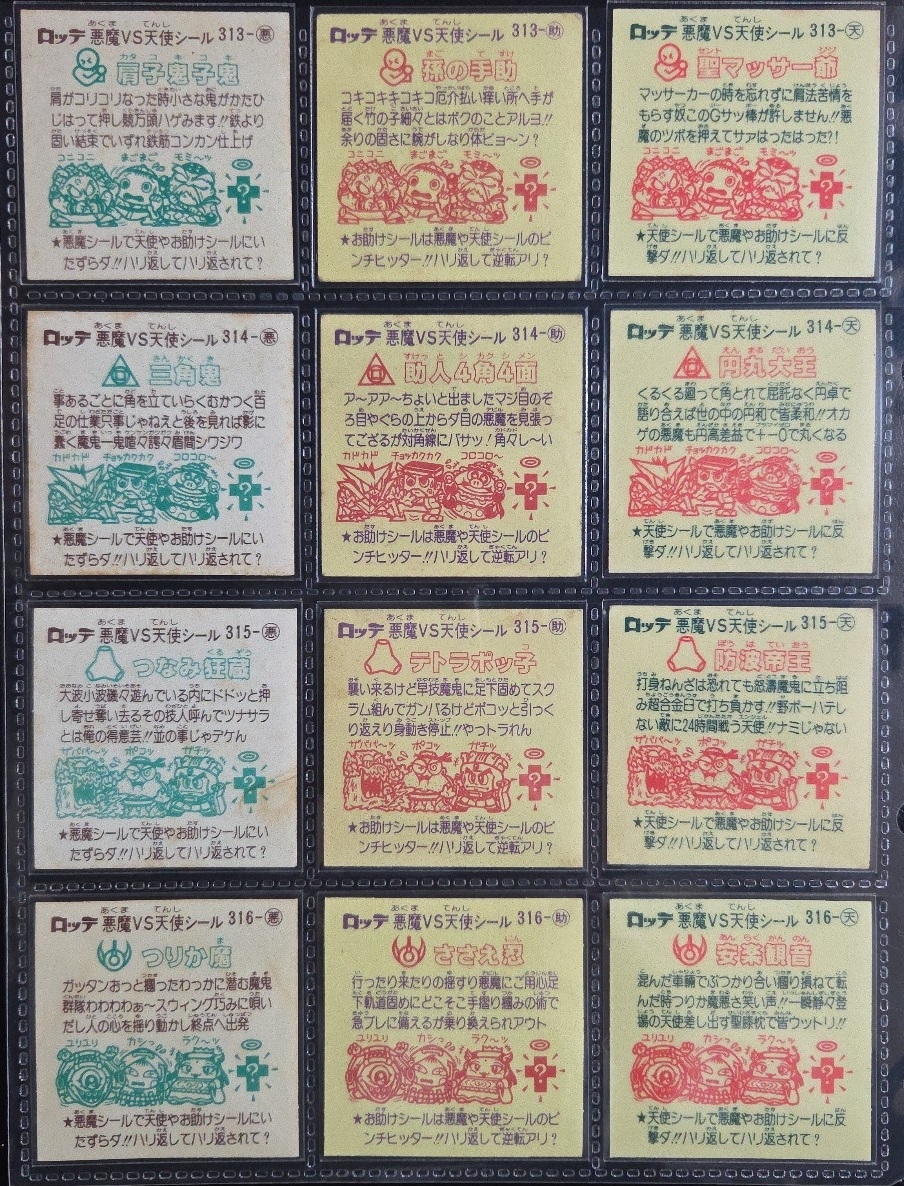 ロッテ 悪魔VS天使シール 313-悪
肩子鬼子鬼
肩がコリコリなった時小さな鬼がかたひ
じはって押し競万頭ハゲみます!!鉄より
固い結束でいずれ鉄筋コンカン仕上げ
コニコニ まごまご モミヘッ
?
★悪魔シールで天使やお助けシールにい
たずらダ!!ハリ返してハリ返されて?
ロッテ 悪魔VS天使シール 313-助
孫の手助
コキコキキコキコ厄介払い痒い所へ手が
届く竹の子細々とはボクのことアルヨ!!
余りの固さに腕がしなり体ビョ〜ン?
コニコニ まごまご モミヘッ
?
★お助けシールは悪魔や天使シールのピ
ンチヒッター!!ハリ返して逆転アリ?
ロッテ 悪魔VS天使シール 313-天
聖マッサー爺
マッサーカーの時を忘れずに肩法苦情を
もらす奴このGサッ棒が許しません!!悪
魔のツボを押えてサアはったはった?!
コニコニ まごまご モミヘッ
?
★天使シールで悪魔やお助けシールに反
撃ダ!!ハリ返してハリ返されて?
ロッテ 悪魔VS天使シール 314-悪
三角鬼
事あるごとに角を立ていらくむかつく百
足の仕業只事じゃねえと後を見れば影に
蠢く魔鬼一鬼喧々諤々眉間シワジワ
カドカド チョッカクカク コロコロ〜
?
★悪魔シールで天使やお助けシールにい
たずらダ!!ハリ返してハリ返されて?
ロッテ 悪魔VS天使シール 314-助
助人4角4面
ア〜アアーちょいと出ましたマジ目のぞ
ろ目やぐらの上からダ目の悪魔を見張っ
てござるが対角線にバサッ!角々し〜い
カドカド チョッカクカク コロコロ〜
?
★お助けシールは悪魔や天使シールのピ
ンチヒッター!!ハリ返して逆転アリ?
ロッテ 悪魔VS天使シール 314-天
円丸大王
くるくる廻って角とれて屈託なく円卓で
語り合えば世の中の円和で皆柔和!!オカ
ゲの悪魔も円高差益で+−0で丸くなる
カドカド チョッカクカク コロコロ〜
?
★天使シールで悪魔やお助けシールに反
撃ダ!!ハリ返してハリ返されて?
ロッテ 悪魔VS天使シール 315-悪
つなみ狂蔵
大波小波磯々遊んでいる内にドドッと押
し寄せ奪い去るその技人呼んでツナサラ
とは俺の得意芸!!並の事じゃデケん
ザパパ〜ッ ポコッ ガチッ
?
★悪魔シールで天使やお助けシールにい
たずらダ!!ハリ返してハリ返されて?
ロッテ 悪魔VS天使シール 315-助
テトラポッ子
襲い来るけど早技魔鬼に足下固めてスク
ラム組んでガンバるけどポコッと引っく
り返えり身動き停止!!やっトラれん
ザパパ〜ッ ポコッ ガチッ
?
★お助けシールは悪魔や天使シールのピ
ンチヒッター!!ハリ返して逆転アリ?
ロッテ 悪魔VS天使シール 315-天
防波帝王
打身ねんざは恐れても怒濤魔鬼に立ち阻
み超合金日で打ち負かす!!野ボーハテし
ない敵に24時間戦う天使!!ナミじゃない
ザパパ〜ッ ポコッ ガチッ
?
★天使シールで悪魔やお助けシールに反
撃ダ!!ハリ返してハリ返されて?
ロッテ 悪魔VS天使シール 316-悪
つりか魔
ガッタンおっと掴ったわっかに潜む魔鬼
群隊わわわわぁ〜スウィング巧みに唄い
だし人の心を揺り動かし終点へ出発
ユリユリ カシっっ ラク〜ッ
?
★悪魔シールで天使やお助けシールにい
たずらダ!!ハリ返してハリ返されて?
ロッテ 悪魔VS天使シール 316-助
ささえ忍
行ったり来たりの揺すり悪魔にご用心足
下軌道固めにどこそこ手摺り掴みの術で
急ブレに備えるが乗り換えられアウト
ユリユリ カシっっ ラク〜ッ
?
★お助けシールは悪魔や天使シールのピ
ンチヒッター!!ハリ返して逆転アリ?
ロッテ 悪魔VS天使シール 316-天
安楽観音
混んだ車輛でぶつかり合い掴り損ねて転
んだ時つりか魔悪さ笑い声!!一瞬静々登
場の天使差し出す聖膝枕で皆ウットリ!!
ユリユリ カシっっ ラク〜ッ
?
★天使シールで悪魔やお助けシールに反
撃ダ!!ハリ返してハリ返されて?